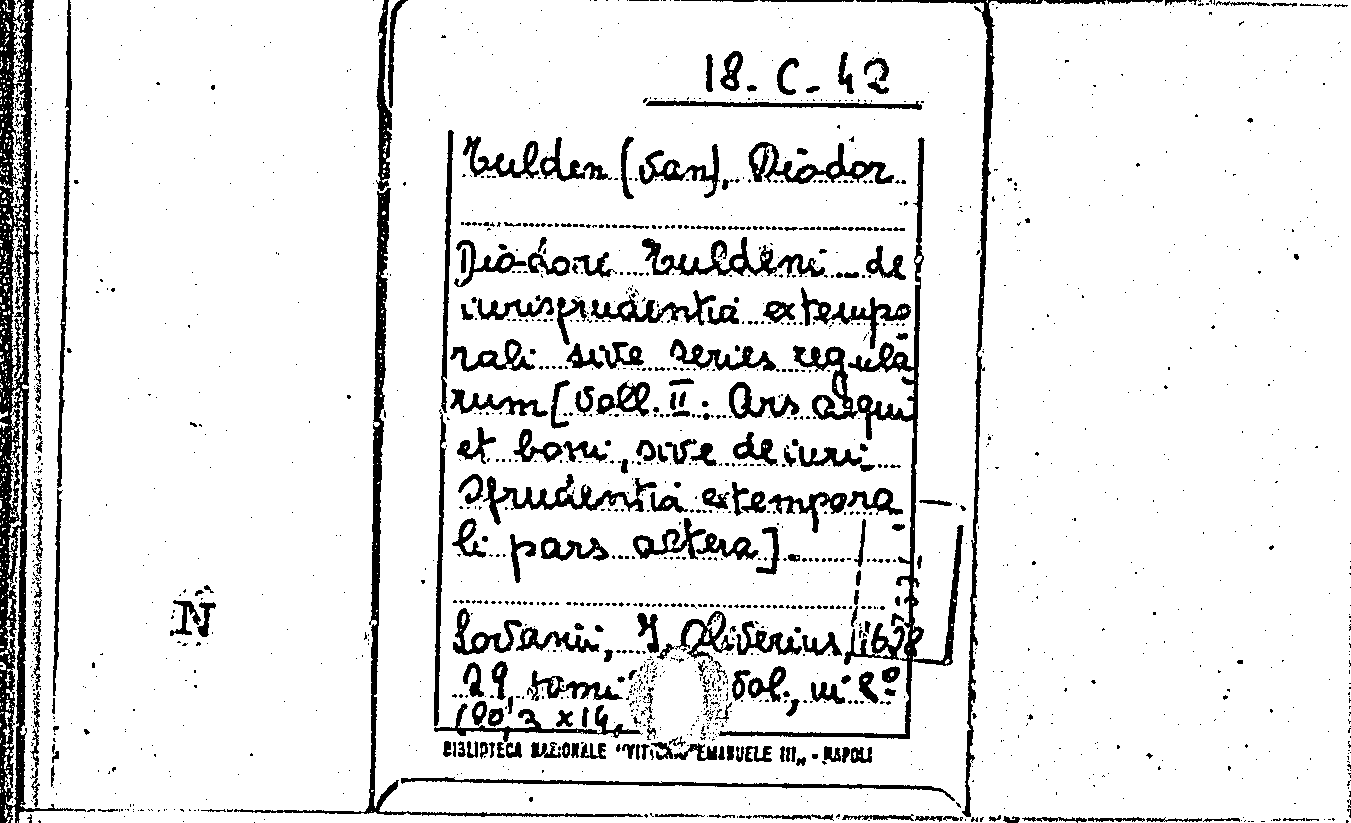 18. C. 42
Tulden (van), Diodor
Diodori Tuldeni de
iurisprudentia extempo
rali sive series regula
rum [Voll. II: Ars aequi
et boni, sive de iuri
sprudentia extempora
li pars altera].
Lovanii, J. Oliverius, 1628
29, tomi vol., in 8º
BIBLIOTECA NAZIONALE "VITT. EMANUELE III„ - NAPOLI
N